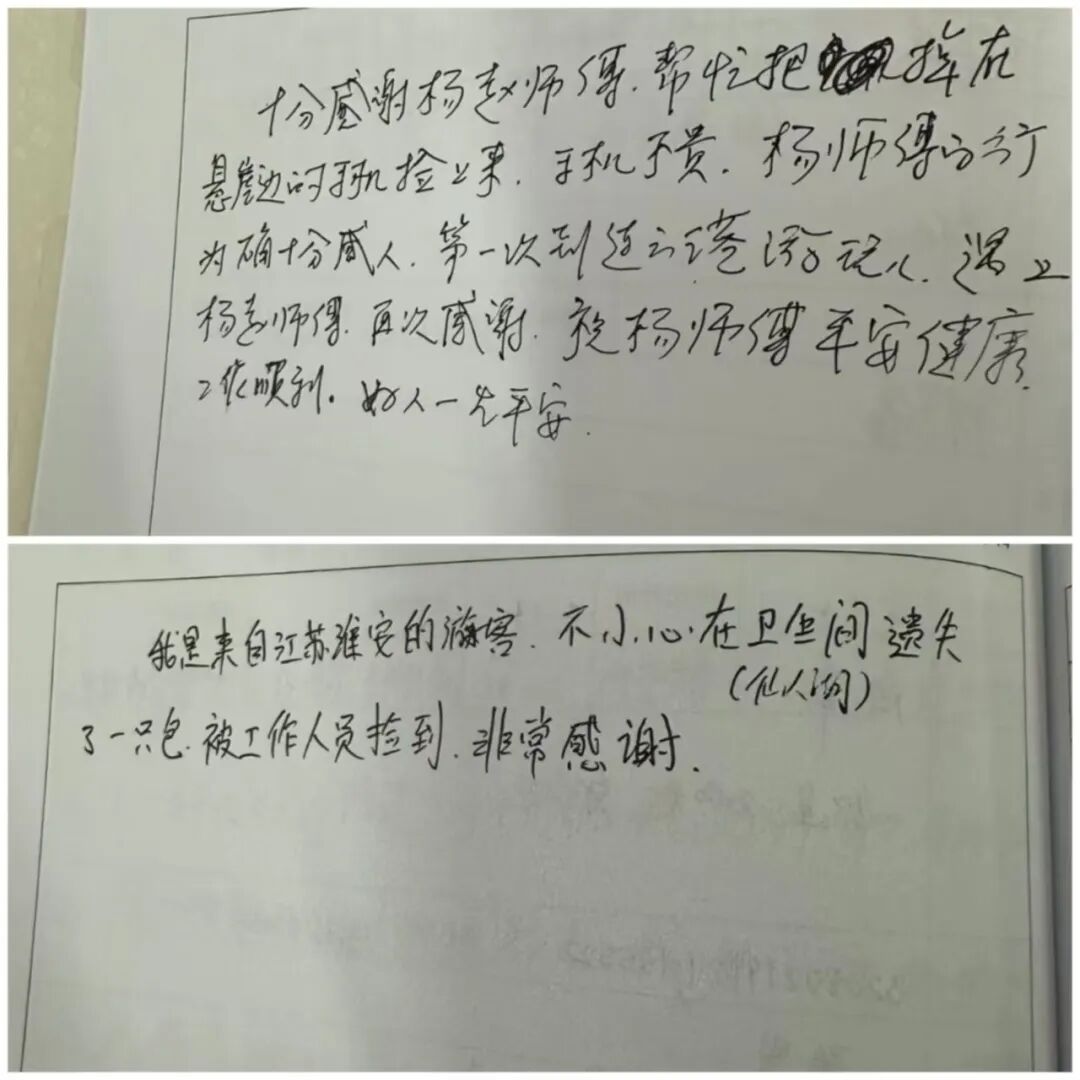 十分感谢杨赵师傅.帮忙把掉在
悬崖边的手机捡上来.手机不贵.杨师傅的行
为确十分感人.第一次到连云港游玩.遇上
杨赵师傅.再次感谢.祝杨师傅平安健康.
工作顺利。好人一生平安.
我是来自江苏淮安的游客.不小心在卫生间遗失
(仙人湖)
了一只包.被工作人员捡到.非常感谢.